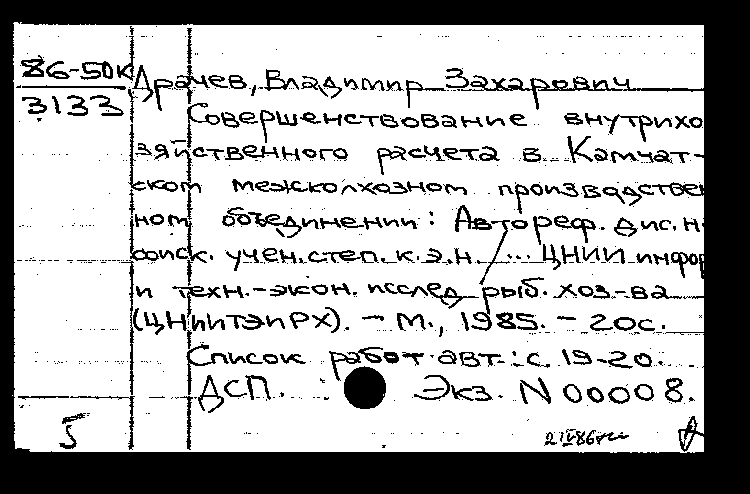 86-50к
3133
Драчев, Владимир Захарович
Совершенствование внутрихо
зяйственного расчета в Камчат-
ском межколхозном производствен
ном объединении: Автореф. дис. н.
соиск. учен. степ. к. э. н. ... ЦНИИ инфор
и техн.-экон. исслед рыб. хоз-ва
(ЦНИИТЭИРХ). - М., 1985. - 20с.
Список работ авт.: с. 19-20.
ДСП. : Экз. N 00008.
5